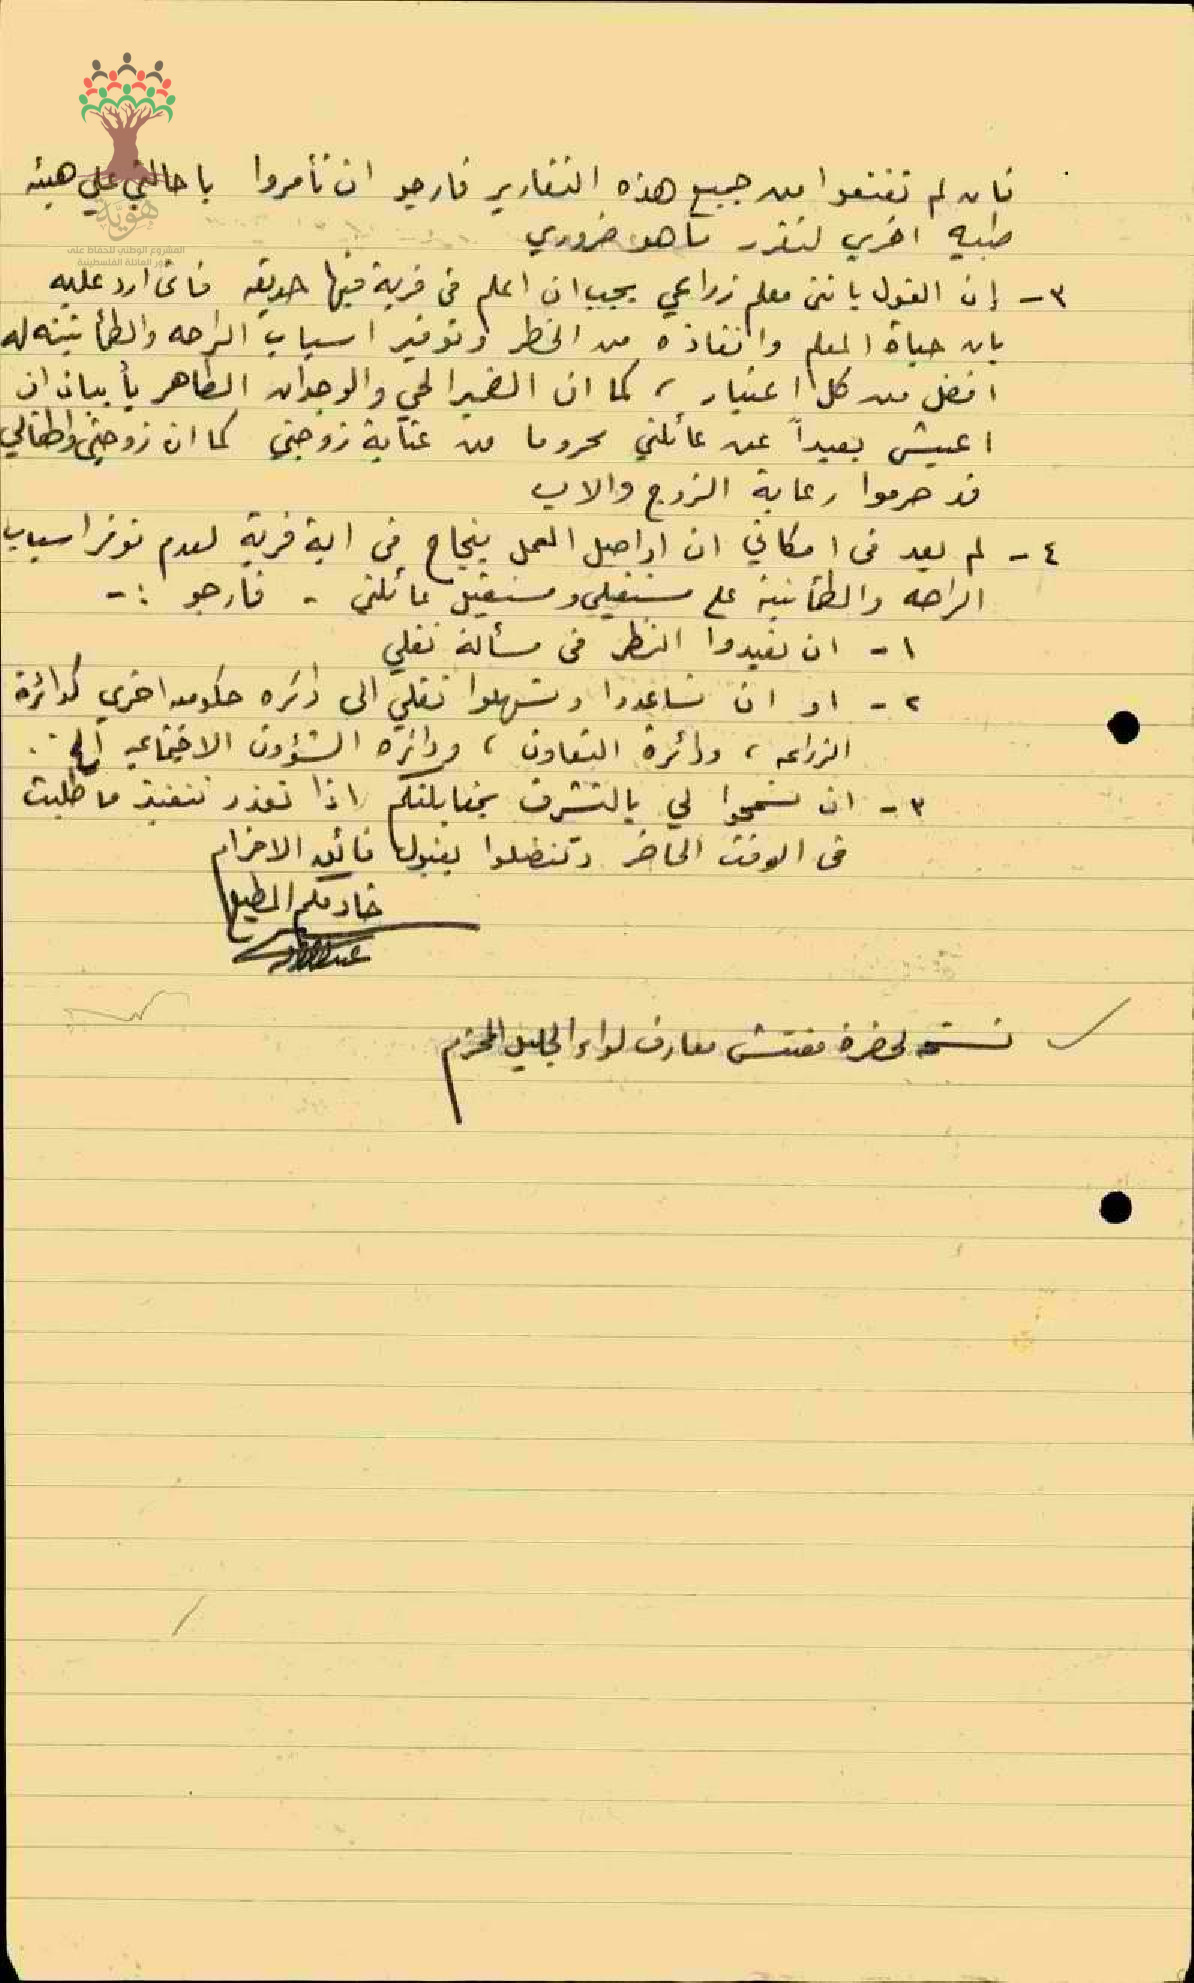 فان لم تقتنعوا من جميع هذه التقارير فارجو ان تأمروا باحالتي علي هيئه
طبيه اخري لتقرر ما هو ضروري
٣ - إن القول بانني معلم زراعي يجب ان اعلم في قرية فيها حديقه فانى ارد عليه
بان حياة المعلم وانقاذه من الخطر وتوفير اسباب الراحه والطمأنينه له
افضل من كل اعتبار ، كما ان الضمير الحي والوجدان الطاهر يأبيان ان
اعيش بعيداً عن عائلتي محروما من عناية زوجتي كما ان زوجتي واطفالي
قد حرموا رعاية الزوج والاب
٤ - لم يعد في امكاني ان اواصل العمل بنجاح في اية قرية لعدم توفر اسباب
الراحه والطمأنينة على مستقبلي ومستقبل عائلتي - فارجو :-
١ - ان تعيدوا النظر في مسألة نقلي
٢ - او ان تساعدوا وتسهلوا نقلي الى دائره حكوميه اخري كدائرة
الزراعه ، ودائرة التعاون ، ودائره الشؤون الاجتماعيه الخ ..
٣ - ان تسمحوا لي بالتشرف بمقابلتكم اذا تعذر تنفيذ ما طلبت
في الوقت الحاضر وتفضلوا بقبول فائق الاحترام
خادمكم المطيع
نسخه لحضرة مفتش معارف لواء الجليل المحترم
هوية
المشروع الوطني للحفاظ على
جذور العائلة الفلسطينية